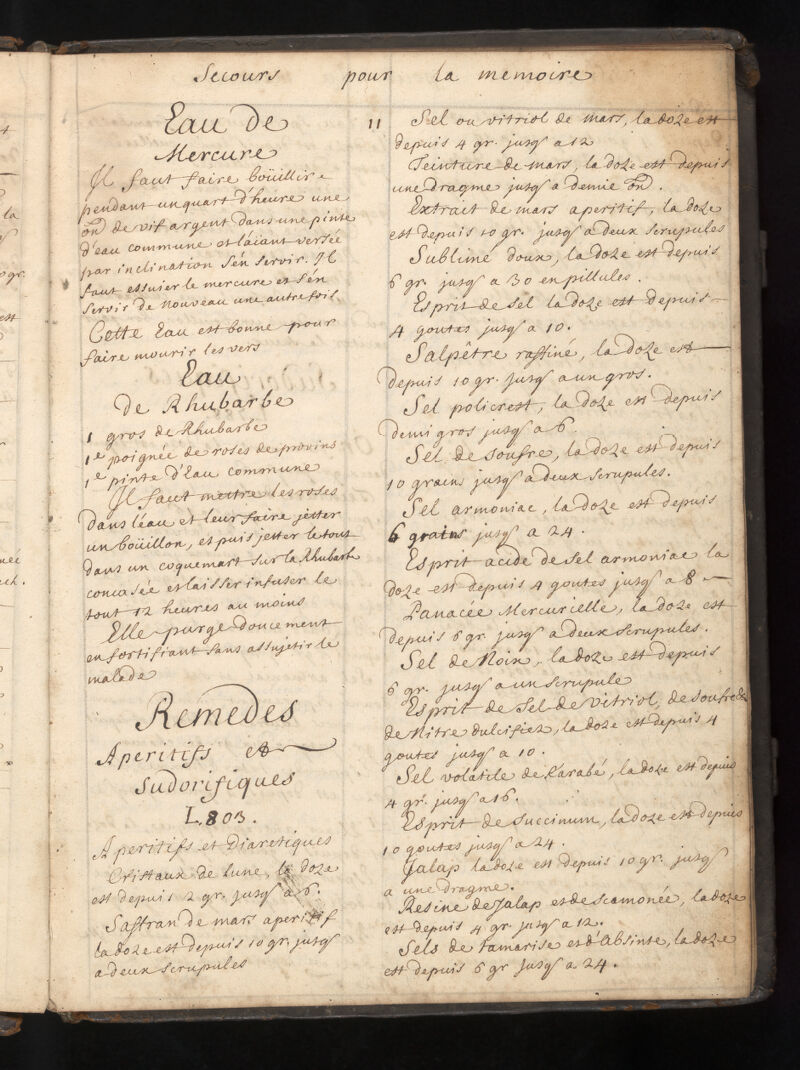 Secours pour la memoire
11
Eau de
Mercure
Il faut faire boüillir
pendant un quart d'heure une
on̄ de vif argent dans une pinte
d'eau commune et laiant versée
par inclination s'én servir. Il
faut essuier le mercure et s'én
servir de nouveau une autre fois
Cette Eau est bonne pour
faire mourir les vers
Eau
de Rhubarbe
1 gros de Rhubarbe
1e poignée de roses de provins
1e pinte d'Eau commune
Il faut mettre les roses
dans léau et leur faire jetter
un boüillon, et puis jetter le tout
dans un coquemart sur la Rhubarbe
concasée et laisser infuser le
tout 12 heures au moins
Elle purge doucement
en fortifiant sans assujetir le
malade
Remedes
Aperitifs et
Sudorifiques
L.803.
Aperitifs et Diaretiques
Cristaux de lune, la doze
est depuis 2 gr. jusq' a 6.
Saffran de mars aperitif
la doze est depuis 10 gr. jusq'
a deux scrupules
Sel ou vitriol de mars, la doze est
depuis 4 gr. jusq' a 12
Teinture de mars, la doze est depuis
une dragme jusq' a demie on̄.
Extrait de mars aperitif, la doze
est depuis 10 gr. jusq' a deux scrupules
Sublimé doux, la doze est depuis
6 gr. jusq' a 30 en pillules.
Esprit de sel la doze est depuis
4 goutes jusq' a 10.
Salpêtre raffiné, la doze est
depuis 10 gr. jusq' a un gros.
Sel policrest, la doze est depuis
demi gros jusq' a 6
Sel de soufre, la doze est depuis
10 grains jusq' a deux scrupules.
Sel armoniac, la doze est depuis
6 grains jusq' a 24.
Esprit acide de sel armoniac la
doze est depuis 4 goutes jusq' a 8
Panacée Mercurielle, la doze est
depuis 6 gr. jusq' a deux scrupules.
Sel de la doze est depuis
6 gr. jusq' a un scrupule
Esprit de sel de vitriol, de soufre &
de Nitre dulcifiez, la doze est depuis 4
goutes jusq' a 10.
Sel volatile de Karabé, la doze est depuis
4 gr. jusq' a 16.
Esprit de Succinum, la doze est depuis
10 goutes jusq' a 24.
Jalap la doze est depuis 10 gr. jusq'
a une dragme.
Resine de Jalap et de scamonée, la doze
est depuis 4 gr. jusq' a 12.
Sels de tamarise et d'Absinte, la doze
est depuis 6 gr. jusq' a 24.